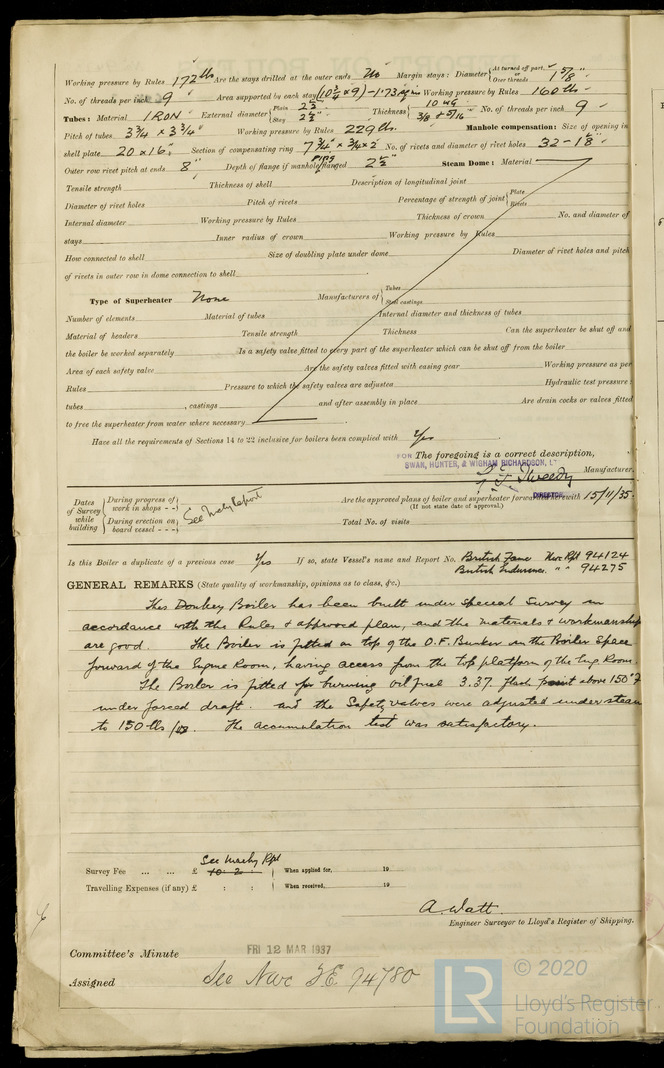 Working pressure by Rules 172 lbs Are the stays drilled at the outer ends No Margin stays: Diameter {At turned off part, or Over threads 1 5/8"
No. of threads per inch 9 Area supported by each stay (10 3/4 × 9) - 1.73 Working pressure by Rules 160 lbs
Tubes: Material IRON External diameter {Plain 2 1/2" Stay 2 1/2" Thickness {10 WG 3/8 + 5/16 No. of threads per inch 9
Pitch of tubes 3 3/4 × 3 3/4" Working pressure by Rules 229 lbs. Manhole compensation: Size of opening in
shell plate 20 × 16" Section of compensating ring 7 3/4 × 3/4 × 2 No. of rivets and diameter of rivet holes 32 - 1 1/8"
Outer row rivet pitch at ends 8" Depth of flange if manhole flanged 2 1/2" Steam Dome: Material
Tensile strength Thickness of shell Description of longitudinal joint
Diameter of rivet holes Pitch of rivets Percentage of strength of joint {Plate Rivets
Internal diameter Working pressure by Rules Thickness of crown No. and diameter of
stays Inner radius of crown Working pressure by Rules
How connected to shell Size of doubling plate under dome Diameter of rivet holes and pitch
of rivets in outer row in dome connection to shell
Type of Superheater None Manufacturers of {Tubes Steel castings
Number of elements Material of tubes Internal diameter and thickness of tubes
Material of headers Tensile strength Thickness Can the superheater be shut off and
the boiler be worked separately Is a safety valve fitted to every part of the superheater which can be shut off from the boiler
Area of each safety valve Are the safety valves fitted with easing gear Working pressure as per
Rules Pressure to which the safety valves are adjusted Hydraulic test pressure:
tubes , castings and after assembly in place Are drain cocks or valves fitted
to free the superheater from water where necessary
Have all the requirements of Sections 14 to 22 inclusive for boilers been complied with Yes
FOR The foregoing is a correct description,
SWAN, HUNTER, & WIGHAM RICHARDSON, L
Manufacturer.
DIRECTOR
Dates of Survey while building {During progress of work in shops - - During erection on board vessel - - - See Mchy Report
Are the approved plans of boiler and superheater forwarded herewith 15/11/35.
(If not state date of approval.)
Total No. of visits
Is this Boiler a duplicate of a previous case Yes If so, state Vessel's name and Report No. British Fame Nwc Rpt 94124
British Endurance " " 94275
GENERAL REMARKS (State quality of workmanship, opinions as to class, &c.)
This Donkey Boiler has been built under Special Survey in
accordance with the Rules & approved plan, and the materials & workmanship
are good. The Boiler is fitted on top of the O.F. Bunker in the Boiler Space
forward of the Engine Room, having access from the top platform of the Eng Room.
The Boiler is fitted for burning oil fuel 3.37. flash point above 150°F
under forced draft. and the Safety valves were adjusted under steam
to 150 lbs/□". The accumulation test was satisfactory.
See Mchy Rpt
Survey Fee ... ... £ 10 : 2 : When applied for, 19
Travelling Expenses (if any) £ : : When received, 19
A. Watt.
Engineer Surveyor to Lloyd's Register of Shipping.
Committee's Minute FRI 12 MAR 1937
Assigned See Nwc JE 94780
LR © 2020
Lloyd's Register
Foundation